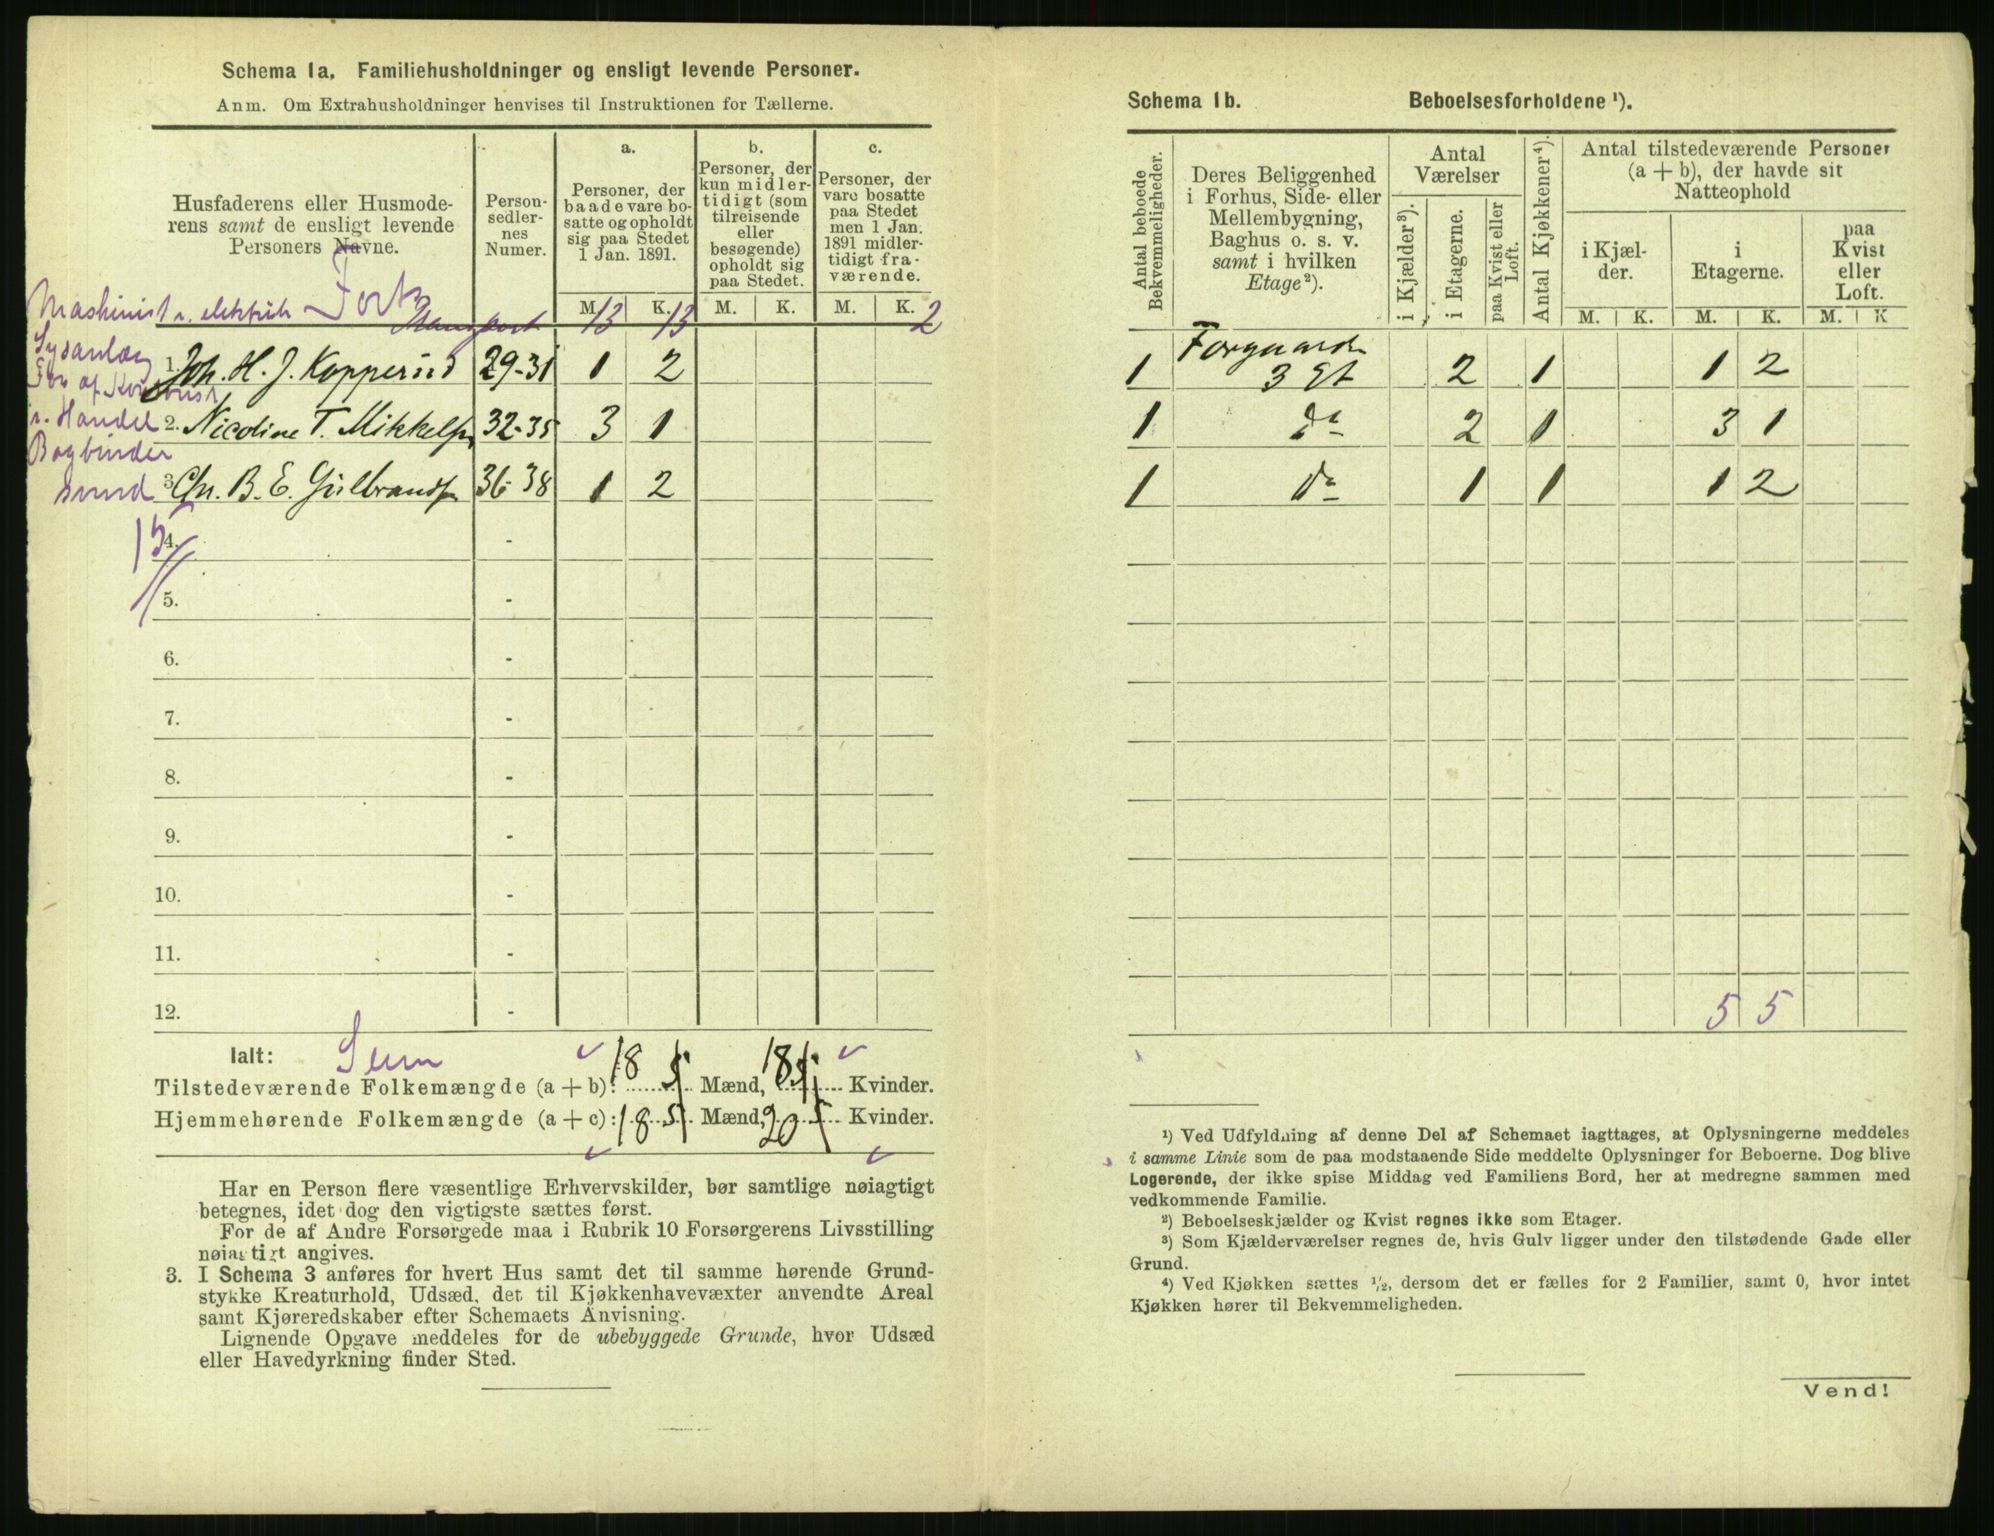 Schema 1a. Familiehusholdninger og ensligt levende Personer.
Anm. Om Extrahusholdninger henvises til Instruktionen for Tællerne.
Husfaderens eller Husmoderens samt de ensligt levende Personers Navne.
Person-sedler-nes Numer.
a.
Personer, der baade vare bosatte og opholdt sig paa Stedet 1 Jan. 1891.
b.
Personer, der kun midlertidigt (som tilreisende eller besøgende) opholdt sig paa Stedet.
c.
Personer, der vare bosatte paa Stedet men 1 Jan. 1891 midlertidigt fraværende.
M. K. M. K. M. K.
Maskinist v. elektrisk
Transport 13 13 2
Lysanlæg
1. Joh. H. J. Kopperud 29-31 1 2
v. Handel
2. Nicoline T. Mikkelsen 32-35 3 1
Bogbinder
svend
3. Chr. B. E. Gulbrandsen 36-38 1 2
15
4. -
5. -
6. -
7. -
8. -
9. -
10. -
11. -
12. -
Ialt: Sum
Tilstedeværende Folkemængde (a + b): 18 5 Mænd, 18 5 Kvinder.
Hjemmehørende Folkemængde (a + c): 18 5 Mænd, 20 5 Kvinder.
Har en Person flere væsentlige Erhvervskilder, bør samtlige nøiagtigt
betegnes, idet dog den vigtigste sættes først.
For de af Andre Forsørgede maa i Rubrik 10 Forsørgerens Livsstilling
nøiagtigt angives.
3. I Schema 3 anføres for hvert Hus samt det til samme hørende Grund-
stykke Kreaturhold, Udsæd, det til Kjøkkenhavevæxter anvendte Areal
samt Kjøreredskaber efter Schemaets Anvisning.
Lignende Opgave meddeles for de ubebyggede Grunde, hvor Udsæd
eller Havedyrkning finder Sted.
Schema 1b. Beboelsesforholdene ¹).
Antal beboede Bekvemmeligheder.
Deres Beliggenhed i Forhus, Side- eller Mellembygning, Baghus o. s. v. samt i hvilken Etage ²).
Antal Værelser
i Kjælder ³).
i Etagerne.
paa Kvist eller Loft.
Antal Kjøkkener ⁴).
Antal tilstedeværende Personer (a + b), der havde sit Natteophold
i Kjælder.
i Etagerne.
paa Kvist eller Loft.
M. K. M. K. M. K
1 Forgaarden 3 Et 2 1 1 2
1 do 2 1 3 1
1 do 1 1 1 2
5 5
¹) Ved Udfyldning af denne Del af Schemaet iagttages, at Oplysningerne meddeles
i samme Linie som de paa modstaaende Side meddelte Oplysninger for Beboerne. Dog blive
Logerende, der ikke spise Middag ved Familiens Bord, her at medregne sammen med
vedkommende Familie.
²) Beboelseskjælder og Kvist regnes ikke som Etager.
³) Som Kjælderværelser regnes de, hvis Gulv ligger under den tilstødende Gade eller
Grund.
⁴) Ved Kjøkken sættes ½, dersom det er fælles for 2 Familier, samt 0, hvor intet
Kjøkken hører til Bekvemmeligheden.
Vend!